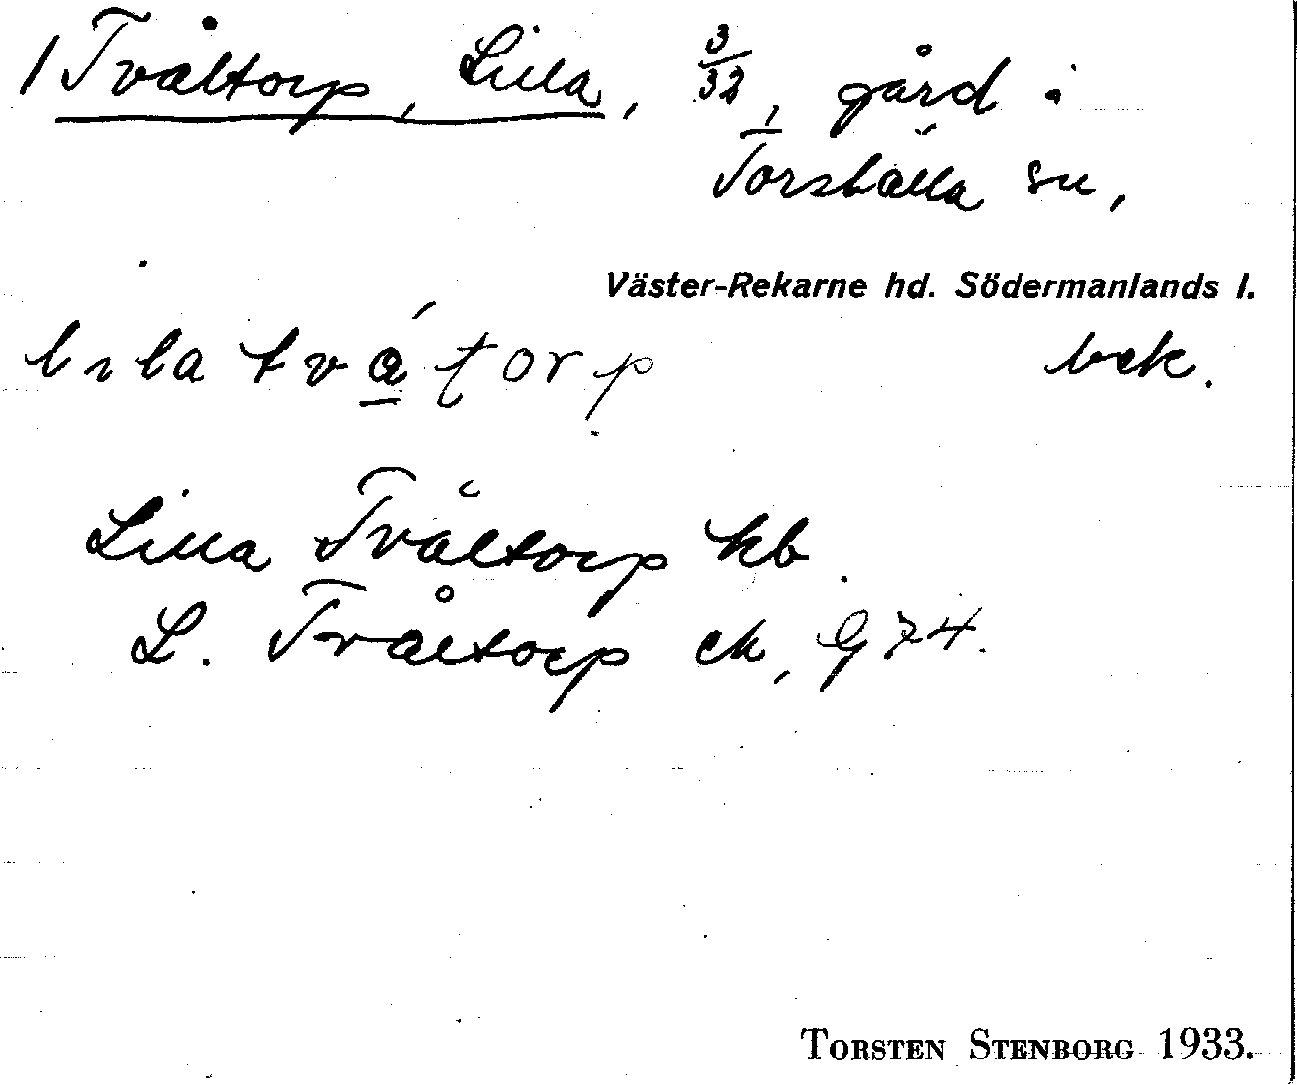 1 Tvåltorp, Lilla, 3/32, gård i
Torshälla sn,
Väster-Rekarne hd. Södermanlands l.
bek.
Lilla Tvåltorp kb
L. Tvåltorp ek, G 74.
TORSTEN STENBORG 1933.